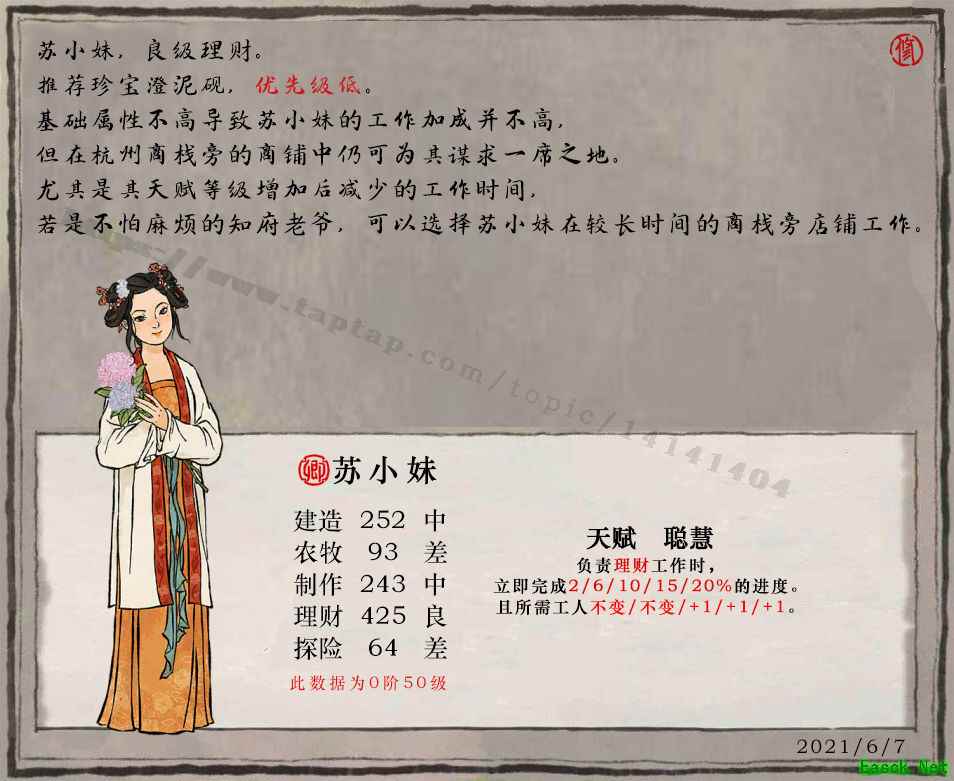 苏小妹，良级理财。
推荐珍宝澄泥砚，优先级低。
基础属性不高导致苏小妹的工作加成并不高，
但在杭州商栈旁的商铺中仍可为其谋求一席之地。
尤其是其天赋等级增加后减少的工作时间，
若是不怕麻烦的知府老爷，可以选择苏小妹在较长时间的商栈旁店铺工作。
www.taptap.com/topic/14141404
卿 苏小妹
建造 252 中
农牧 93 差
制作 243 中
理财 425 良
探险 64 差
此数据为0阶50级
天赋 聪慧
负责理财工作时，
立即完成2/6/10/15/20%的进度。
且所需工人不变/不变/+1/+1/+1。
2021/6/7